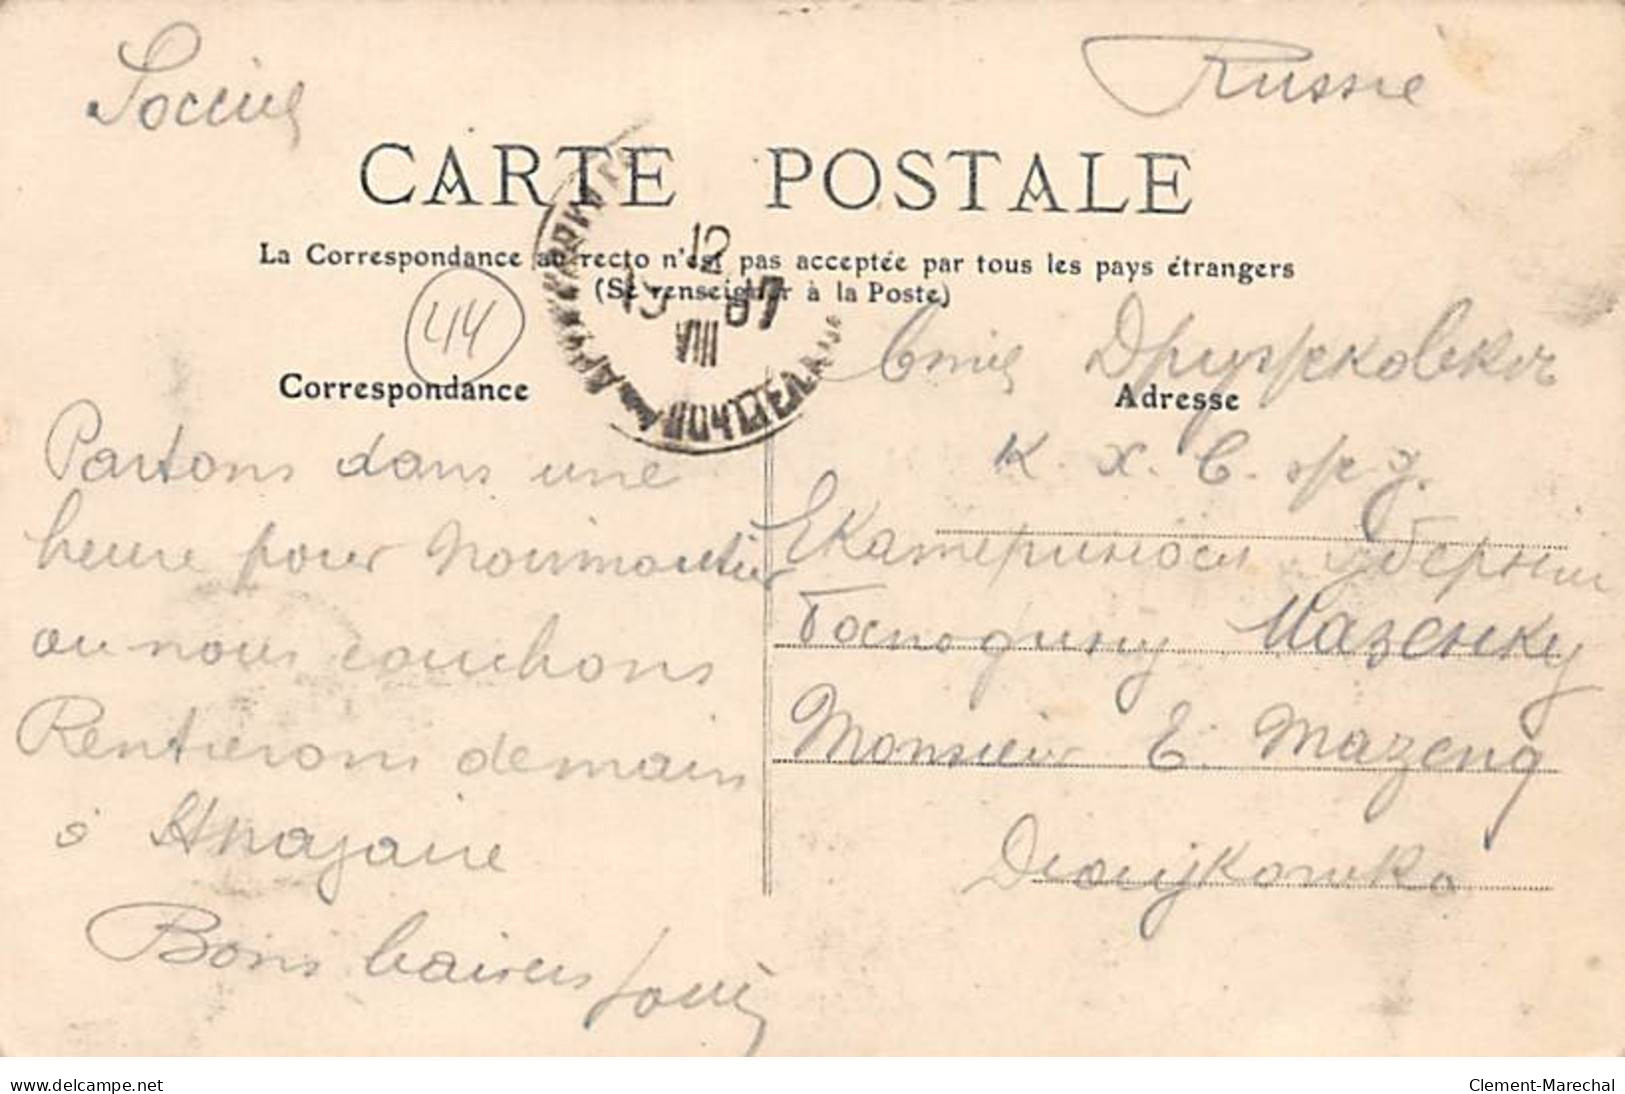 Russie
CARTE POSTALE
La Correspondance au recto n'est pas acceptée par tous les pays étrangers
(Se renseigner à la Poste)
12
15 07
VIII
44
Correspondance
Adresse
Partons dans une
heure pour Noirmoutier
ou nous couchons
Rentrerons demain
à
Bons baisers
К. Х. С. ж. д.
Екатериносл губернии
Господину Мазенку
Monsieur E. Mazeng
www.delcampe.net
Clement-Marechal